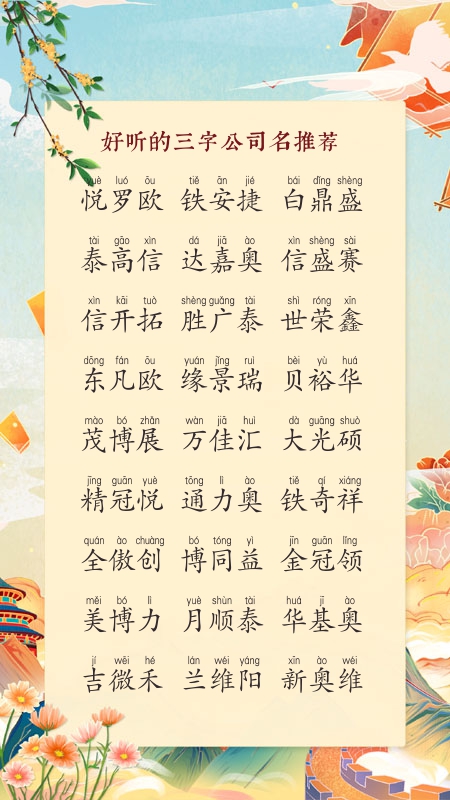 好听的三字公司名推荐
yuè luó ōu tiě ān jié bái dǐng shèng
悦罗欧 铁安捷 白鼎盛
tài gāo xìn dá jiā ào xìn shèng sài
泰高信 达嘉奥 信盛赛
xìn kāi tuò shèng guǎng tài shì róng xīn
信开拓 胜广泰 世荣鑫
dōng fán ōu yuán jǐng ruì bèi yù huá
东凡欧 缘景瑞 贝裕华
mào bó zhǎn wàn jiā huì dà guāng shuò
茂博展 万佳汇 大光硕
jīng guān yuè tōng lì ào tiě qí xiáng
精冠悦 通力奥 铁奇祥
quán ào chuàng bó tóng yì jīn guān lǐng
全傲创 博同益 金冠领
měi bó lì yuè shùn tài huá jī ào
美博力 月顺泰 华基奥
jí wēi hé lán wéi yáng xīn ào wéi
吉微禾 兰维阳 新奥维